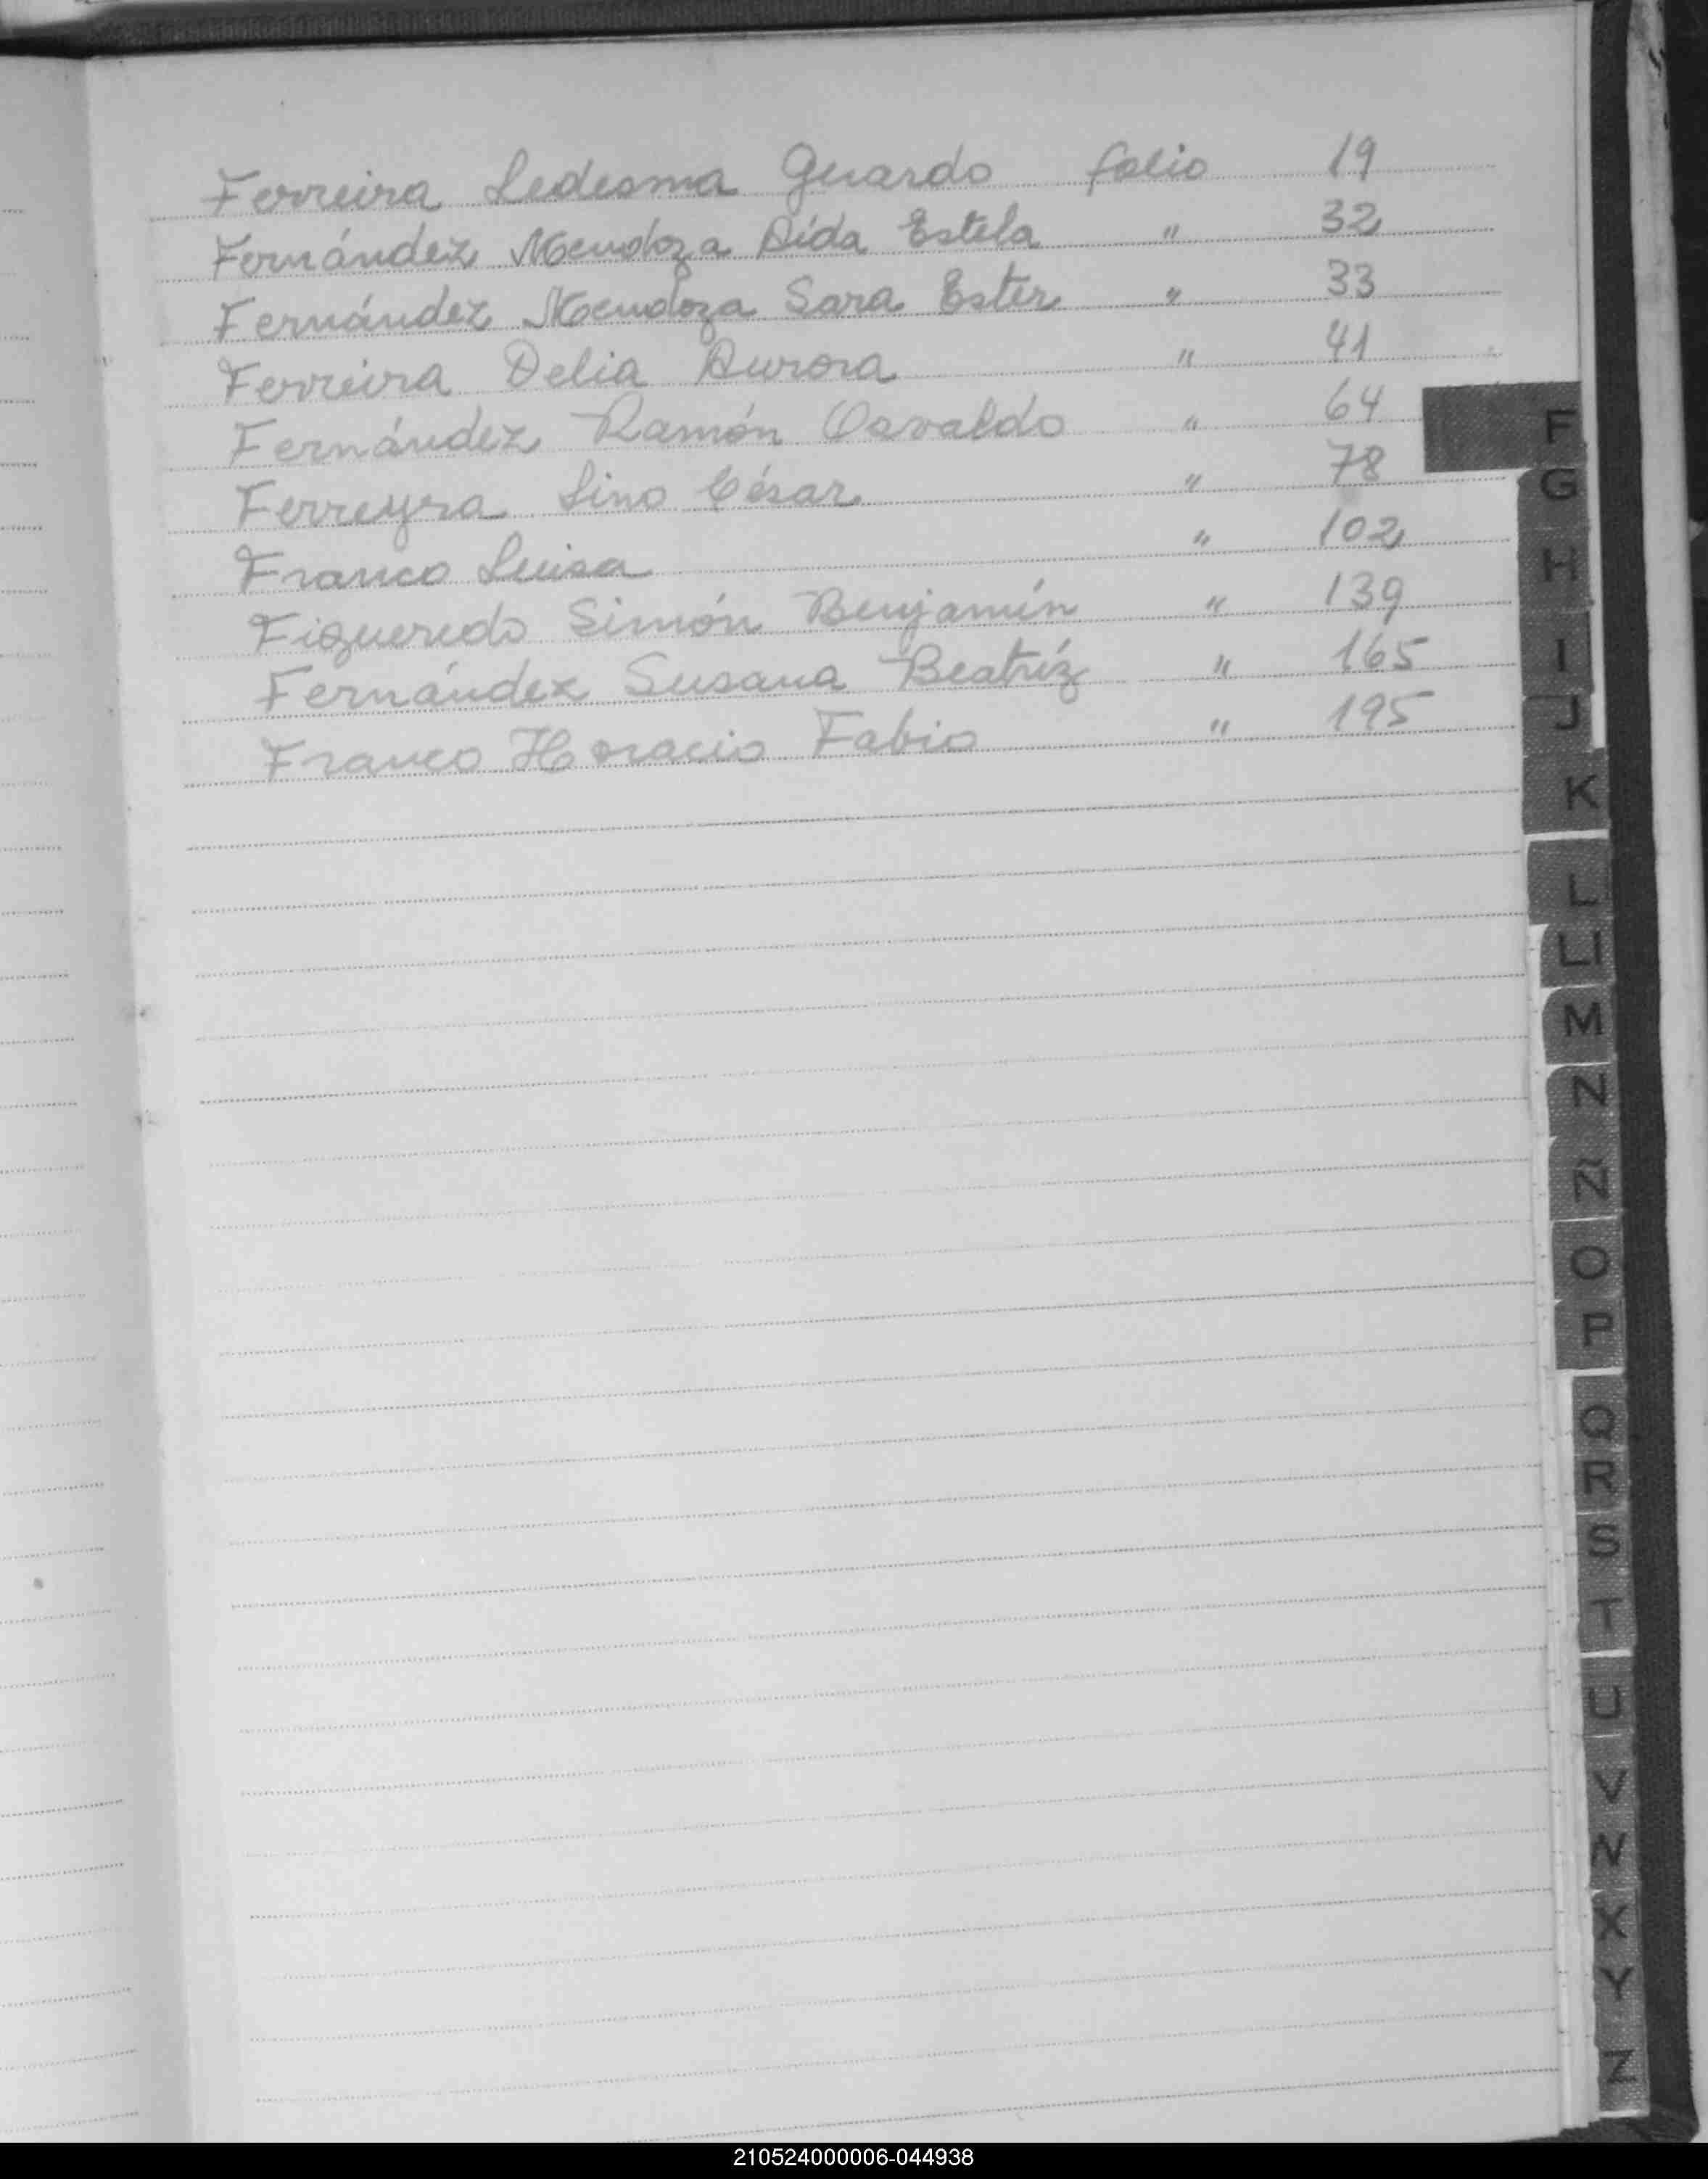 Ferreira Ledesma Gerardo folio 19
Fernández Mendoza Aída Estela " 32
Fernández Mendoza Sara Ester " 33
Ferreira Delia Aurora " 41
Fernández Ramón Osvaldo " 64
Ferreyra Lino César " 78
Franco Luisa " 102
Figueredo Simón Benjamín " 139
Fernández Susana Beatríz " 165
Franco Horacio Fabio " 195
F
G
H
I
J
K
L
Ll
M
N
Ñ
O
P
Q
R
S
T
U
V
W
X
Y
Z
210524000006-044938